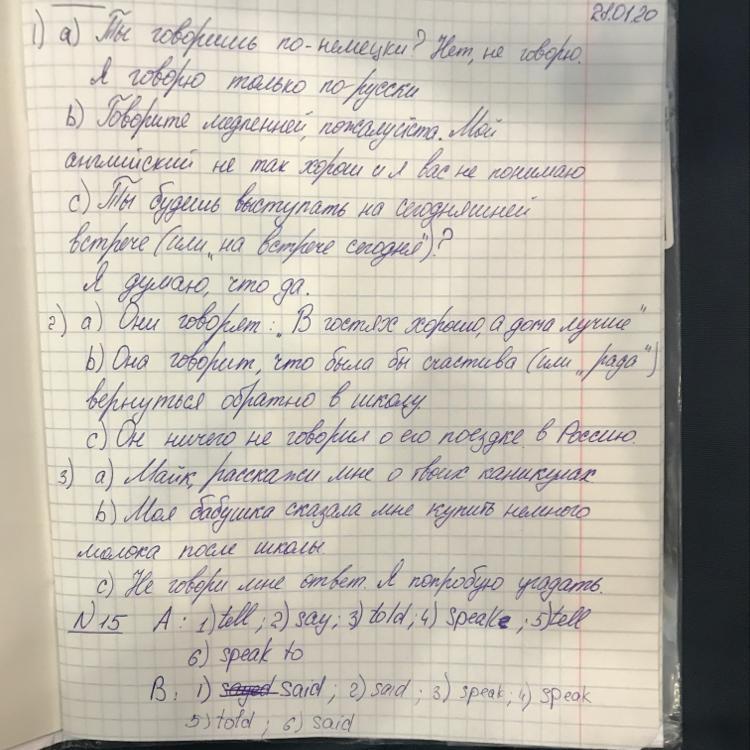 28.01.20
1) a) Ты говоришь по-немецки? Нет, не говорю.
Я говорю только по-русски
b) Говорите медленней, пожалуйста. Мой
английский не так хорош и я вас не понимаю
c) Ты будешь выступать на сегодняшней
встрече (или „на встрече сегодня")?
Я думаю, что да.
2) a) Они говорят: „В гостях хорошо, а дома лучше"
b) Она говорит, что была бы счастлива (или „рада")
вернуться обратно в школу.
c) Он ничего не говорил о его поездке в Россию.
3) a) Майк, расскажи мне о твоих каникулах
b) Моя бабушка сказала мне купить немного
молока после школы.
c) Не говори мне ответ. Я попробую угадать.
N 15 A: 1) tell; 2) say; 3) told; 4) speak; 5) tell
6) speak to
B: 1) sayed said; 2) said; 3) speak; 4) speak
5) told; 6) said